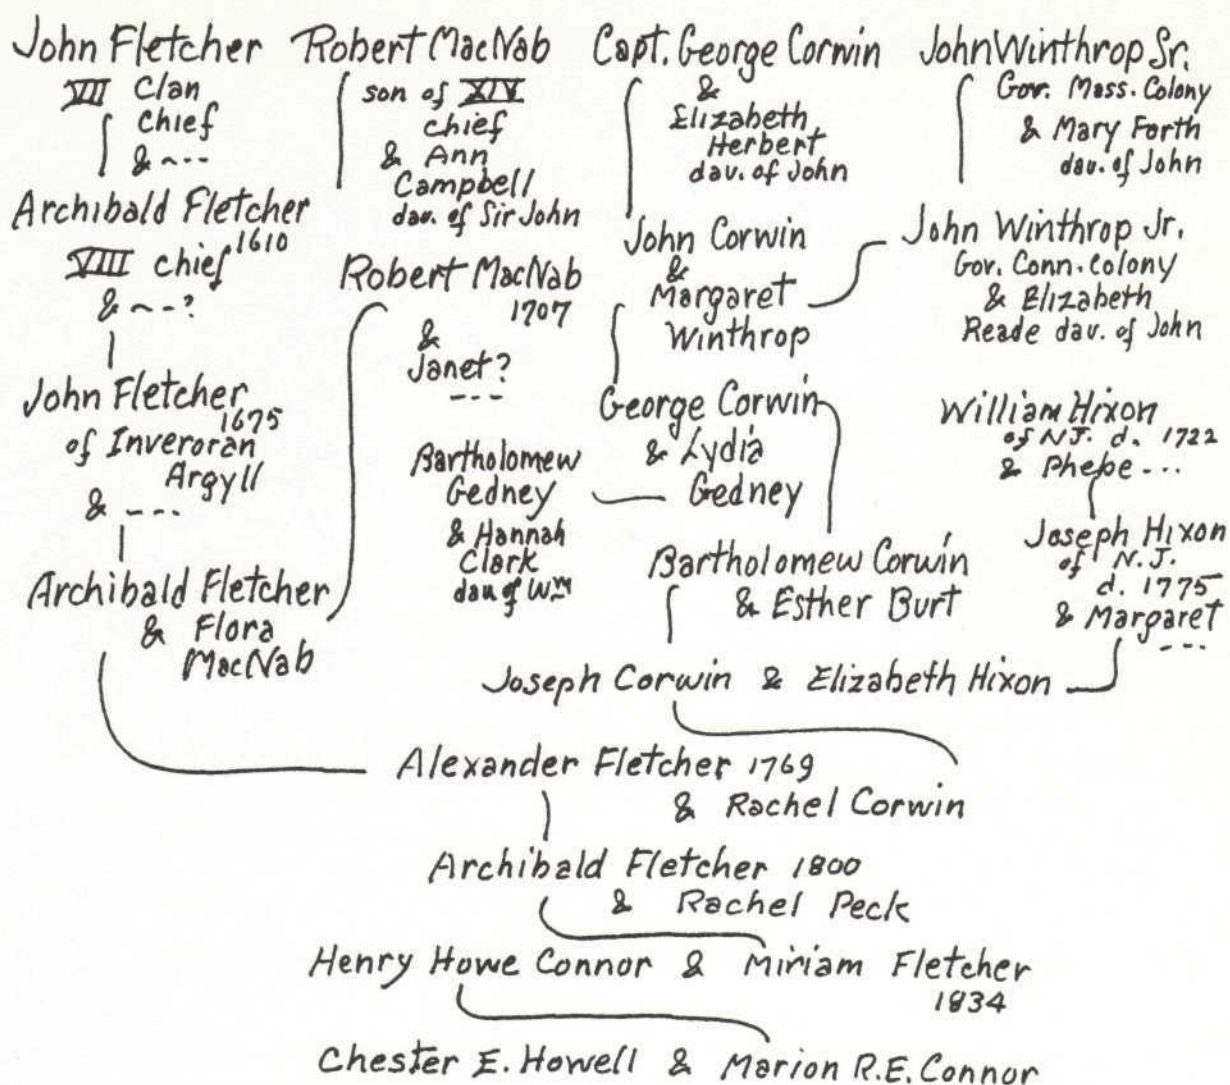 John Fletcher
VII Clan
chief
& ~---
Archibald Fletcher
1610
VIII chief
& ~-?
John Fletcher
1675
of Inveroran
Argyll
& ----
Archibald Fletcher
& Flora
MacNab
Robert MacNab
son of XIV
chief
& Ann
Campbell
dau. of Sir John
Robert MacNab
1707
&
Janet?
---
Bartholomew
Gedney
& Hannah
Clark
dau of Wm
Capt. George Corwin
&
Elizabeth
Herbert
dau. of John
John Corwin
&
Margaret
Winthrop
George Corwin
& Lydia
Gedney
Bartholomew Corwin
& Esther Burt
John Winthrop Sr.
Gov. Mass. Colony
& Mary Forth
dau. of John
John Winthrop Jr.
Gov. Conn. Colony
& Elizabeth
Reade dau. of John
William Hixon
of NJ. d. 1722
& Phebe ---
Joseph Hixon
of N.J.
d. 1775
& Margaret
---
Joseph Corwin & Elizabeth Hixon
Alexander Fletcher 1769
& Rachel Corwin
Archibald Fletcher 1800
& Rachel Peck
Henry Howe Connor & Miriam Fletcher
1834
Chester E. Howell & Marion R.E. Connor